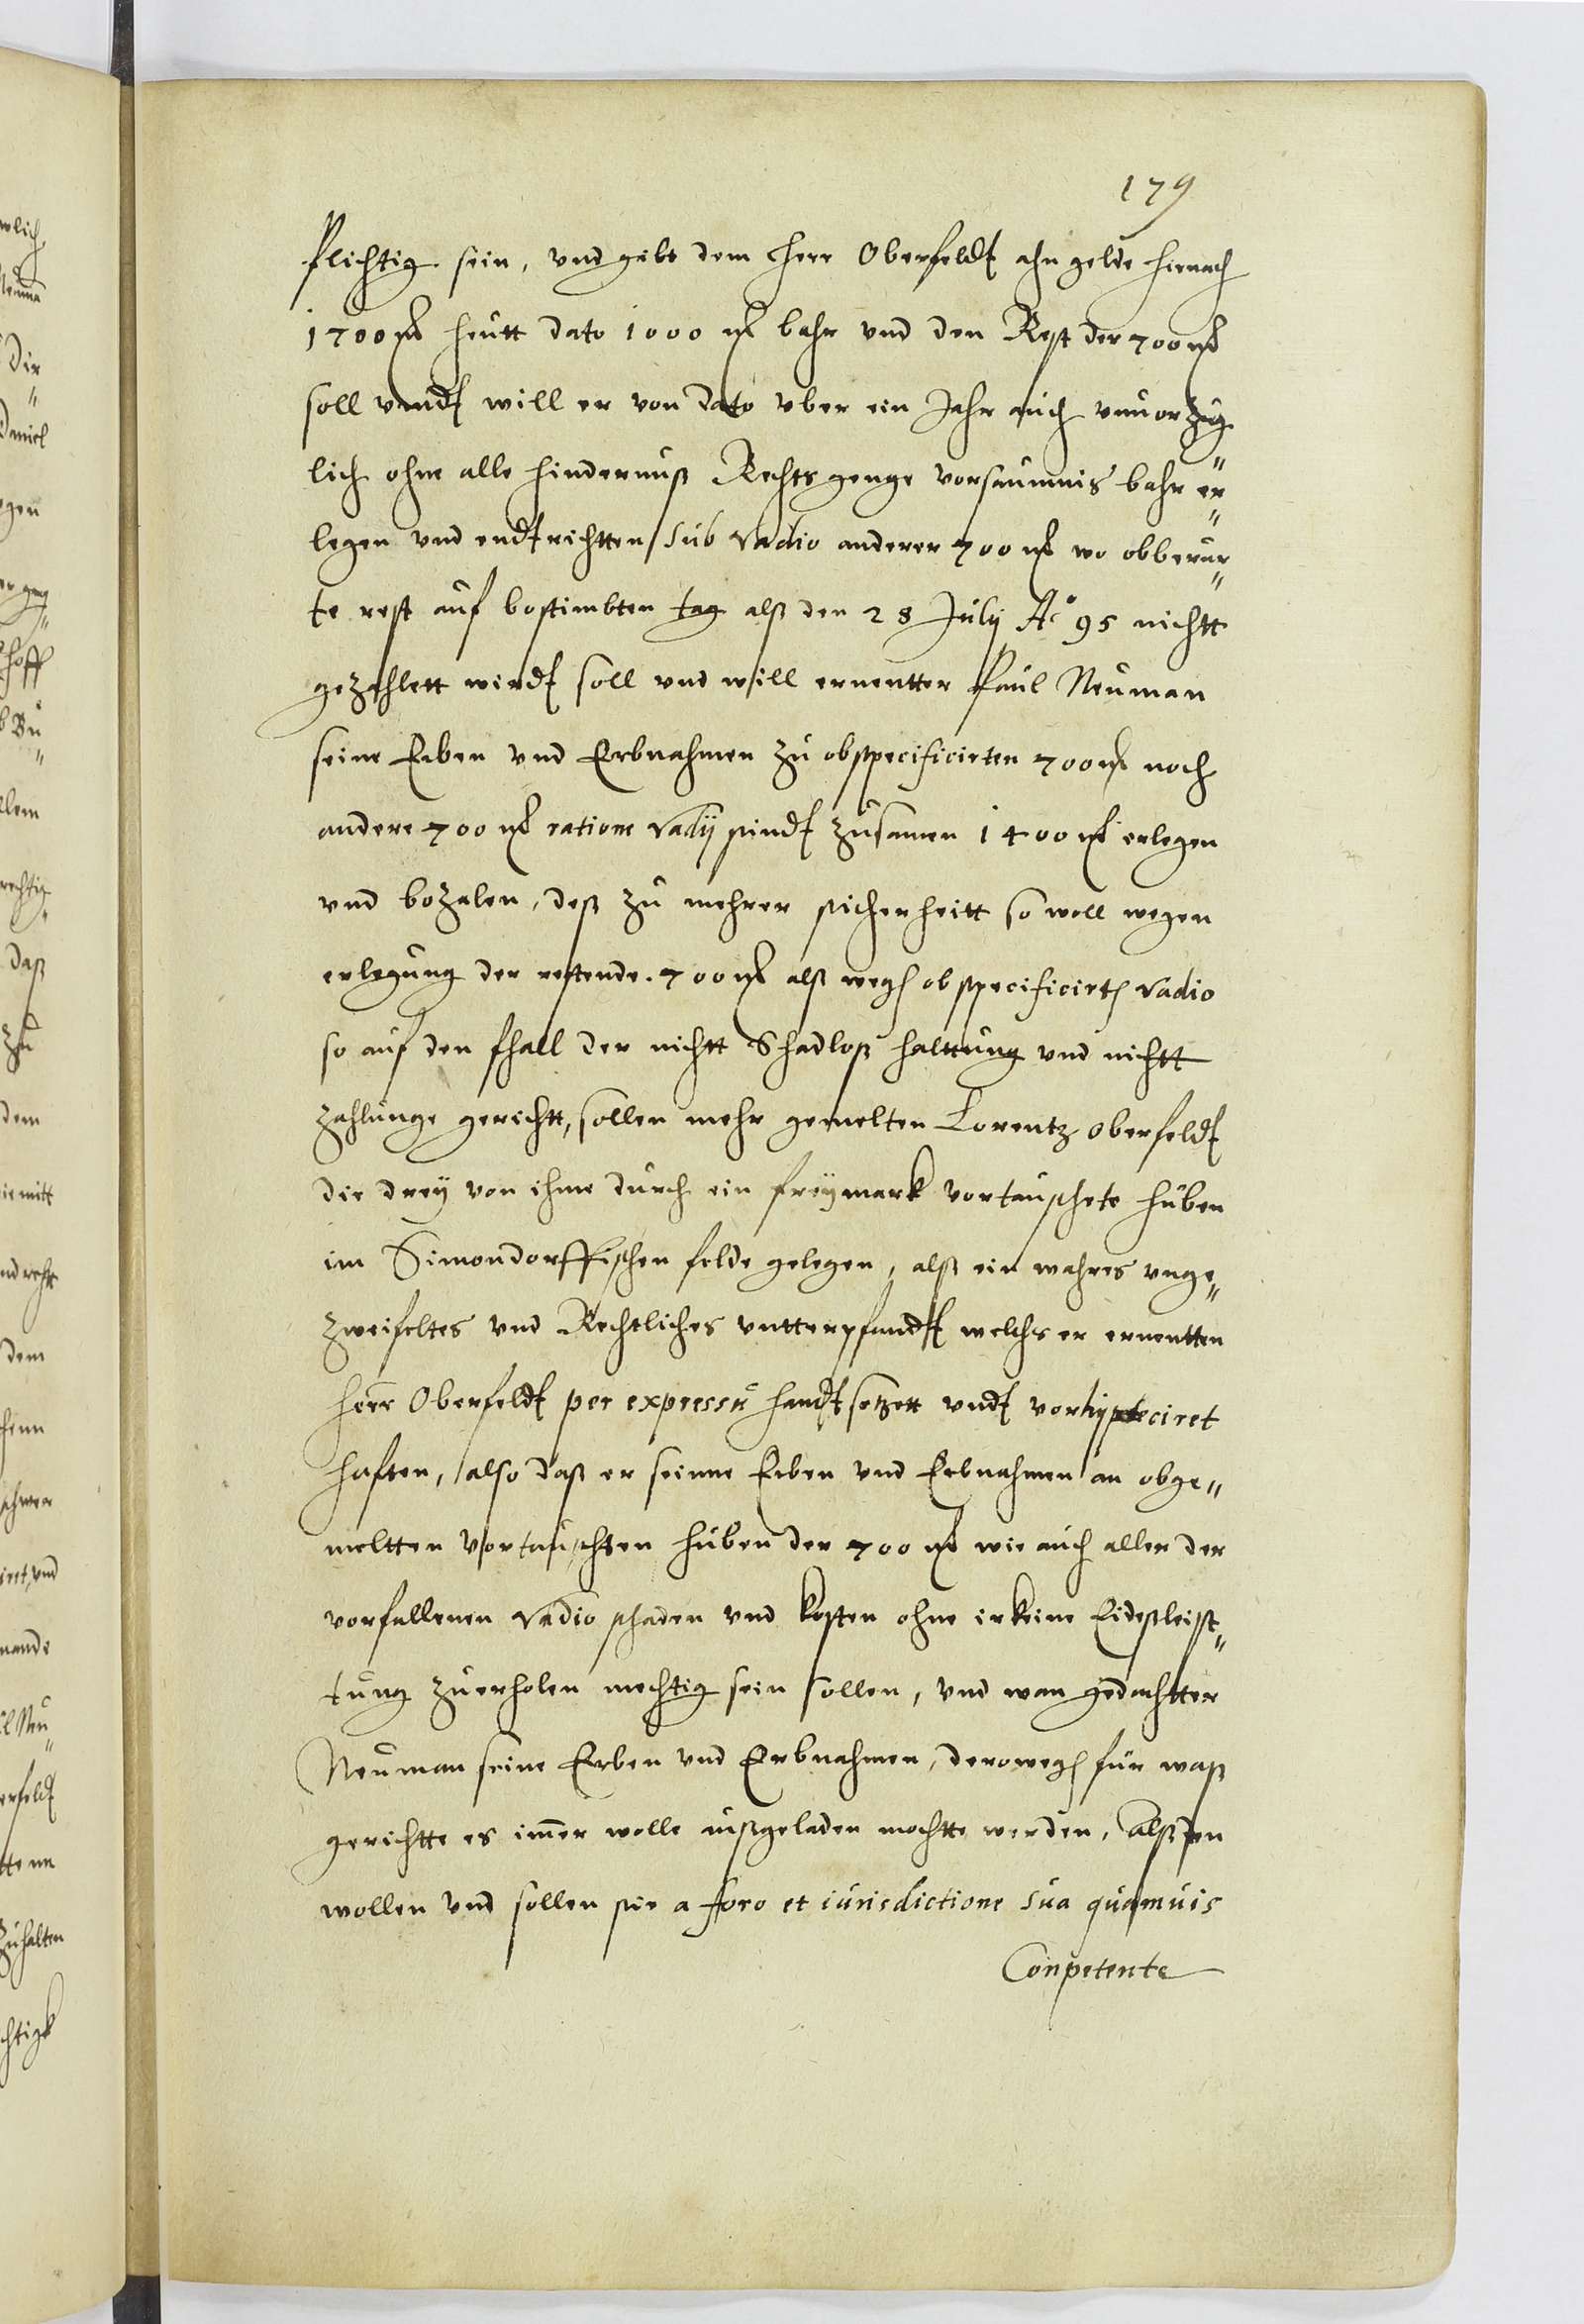 179
Pflichtig sein, vnd gibt dem Herr Oberfeldt ahn gelde hiernach
1700 mk heutt dato 1000 mk bahr vnd den Rest der 700 mk
soll vndt will er von dato vber ein Jahr auch vnuorzüg„
lich ohne alle hindernuß Rechts genge vorsaumnis bahr er„
legen vnd endtrichten sub vadio anderer 700 mk wo obberur„
te rest auf bestimbten tag alß den 28 July Ao 95 nichtt
gezahlett wirdt soll vnd will ernentter Paul Neuman
seine Erben vnd Erbnahmen zu obspecificirten 700 mk noch
andere 700 mk ratione vadij sindt zusamen 1400 mk erlegen
vnd bezalen, deß zu mehrer sicherheitt so woll wegen
erlegung der restende 700 mk alß wegen obspecificirten vadio
so auf den fhall der nichtt Schadloß halttung vnd nichtt
zahlunge gerichtt, sollen mehr gemelten Lorentz Oberfeldt
die drey von ihme durch ein freymark vortauschete huben
im Simondorffischen felde gelegen, alß ein wahres vnge„
zweifeltes vnd Rechtliches vntterpfandt welchs er ernentten
Herr Oberfeldt per expressu handt setzett vndt vorhypteciret
haften, also daß er seinne Erben vnd Erbnahmen an obge„
meltten vortauschten huben der 700 mk wie auch aller der
vorfallenen vadio schaden vnd kosten ohne irkeine Eidesleist„
tung zuerholen mechtig sein sollen, vnd wan gedachtter
Neuman seine Erben vnd Erbnahmen, derowegen für waß
gerichtte es imer wolle außgeladen mochtte werden, Alßden
wollen vnd sollen sie a foro et iurisdictione sua quamuis
Conpetente